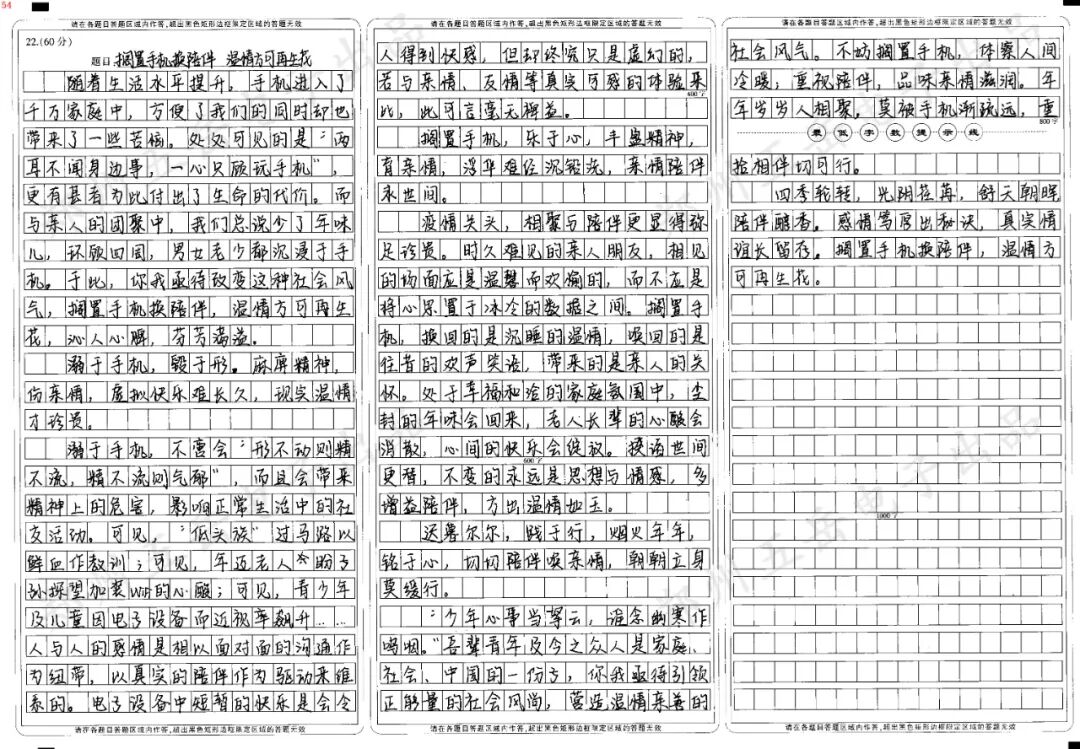 54
请在各题目答题区域内作答,超出黑色矩形边框限定区域的答题无效
22.(60分)
题目 搁置手机换陪伴 温情方可再生花
随着生活水平提升。手机进入了
千万家庭中，方便了我们的同时却也
带来了一些苦恼。处处可见的是“两
耳不闻身边事，一心只顾玩手机”，
更有甚者为此付出了生命的代价。而
与亲人的团聚中，我们总说少了年味
儿，环顾四周，男女老少都沉浸于手
机。于此，你我亟待改变这种社会风
气，搁置手机换陪伴，温情方可再生
花，沁人心脾，芬芳满溢。
溺于手机，毁于形。麻痹精神，
伤亲情，虚拟快乐难长久，现实温情
才珍贵。
溺于手机，不啻会“形不动则精
不流，精不流则气郁”，而且会带来
精神上的危害，影响正常生活中的社
交活动。可见，“低头族”过马路以
鲜血作教训；可见，年迈老人盼子
孙探望加装WiFi的心酸；可见，青少年
及儿童因电子设备而近视率飙升……
人与人的感情是相以面对面的沟通作
为纽带，以真实的陪伴作为驱动来维
系的。电子设备中短暂的快乐是会令
请在各题目答题区域内作答,超出黑色矩形边框限定区域的答题无效
请在各题目答题区域内作答,超出黑色矩形边框限定区域的答题无效
人得到快感，但却终究只是虚幻的，
若与亲情、友情等真实可感的体验来
比，此可言毫无裨益。
600字
搁置手机，乐于心，丰盈精神，
育亲情，浮华难经沉铅洗，亲情陪伴
永世间。
疫情失头，相聚与陪伴更显得弥
足珍贵。时久难见的亲人朋友，相见
的场面应是温馨而欢愉的，而不应是
将心思置于冰冷的数据之间。搁置手
机，换回的是沉睡的温情，唤回的是
往昔的欢声笑语，带来的是亲人的关
怀。处于幸福和洽的家庭氛围中，尘
封的年味会回来，老人长辈的心酸会
消散，心间的快乐会绽放。换语世间
600字
更替，不变的永远是思想与情感，多
增益陪伴，方出温情如玉。
送暮尔尔，践于行，烟火年年，
铭于心，切切陪伴唤亲情，朝朝立身
莫缓行。
“少年心事当拏云，谁念幽寒作
呜咽。”吾辈青年及今之众人是家庭、
社会、中国的一份子，你我亟待引领
正能量的社会风尚，营造温情亲善的
请在各题目答题区域内作答,超出黑色矩形边框限定区域的答题无效
请在各题目答题区域内作答,超出黑色矩形边框限定区域的答题无效
社会风气。不妨搁置手机，体察人间
冷暖；重视陪伴，品味亲情滋润。年
年岁岁人相聚，莫被手机渐疏远，重
800字
最低字数提示线
拾相伴切可行。
四季轮转，光阴荏苒，舒天朝晖
陪伴醇香。感情笃厚出秘诀，真实情
谊长留存。搁置手机换陪伴，温情方
可再生花。
1000字
请在各题目答题区域内作答,超出黑色矩形边框限定区域的答题无效